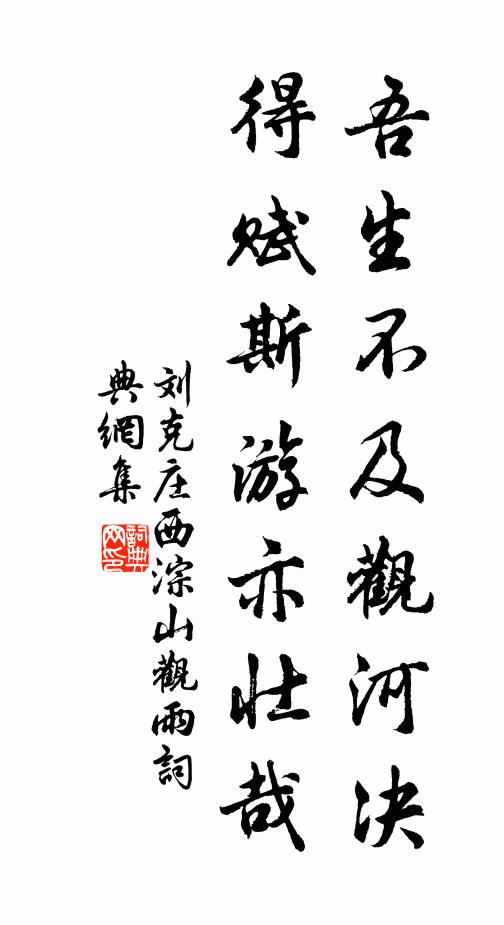 吾生不及觀河决
得赋斯游亦壮哉
刘克庄西淙山觀雨詞
典網集
詞典网印